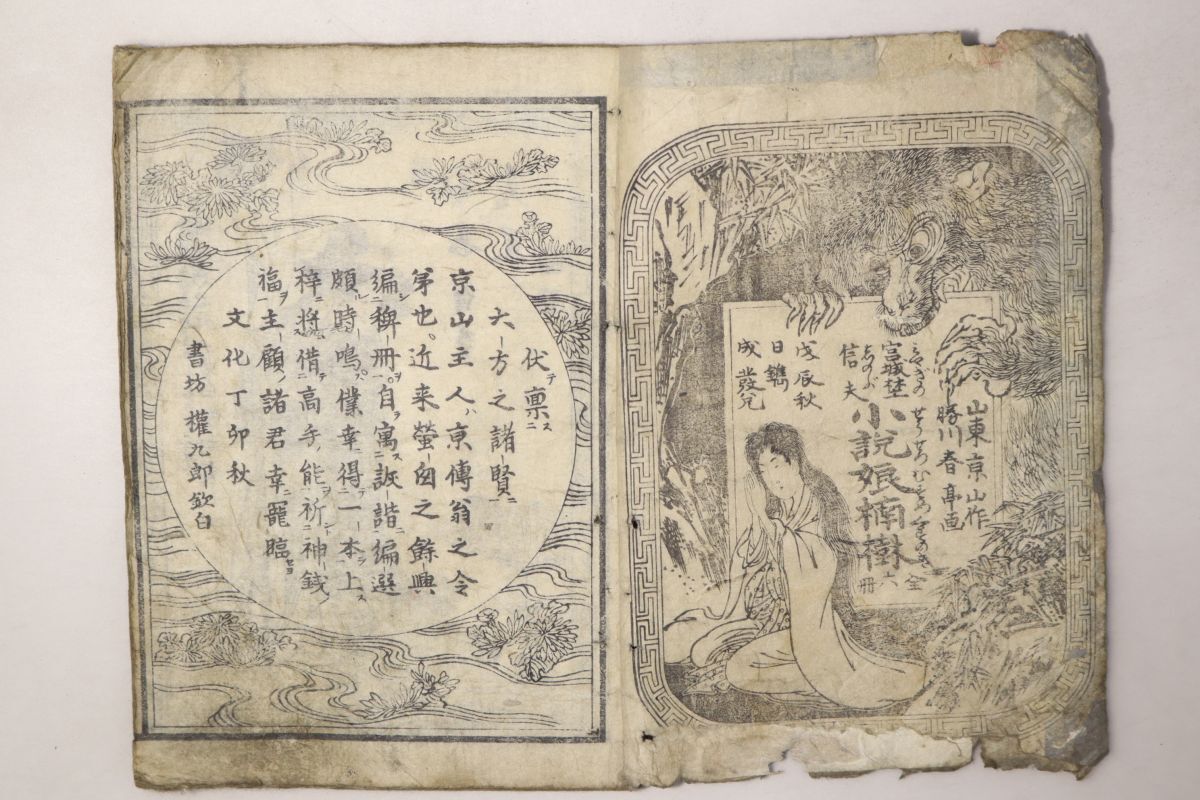 山東京山作
勝川春亭画
宮城埜
信夫
小説娘楠樹
全
六冊
戊辰秋
日鐫
成發兌
伏稟
大方之諸賢
京山主人ハ京傳翁之令
弟也近来螢囱之餘興
編稗冊自寓詼諧編選
頗時鳴僕幸得一本上
梓将借高手能祈神錢
福主顧諸君幸寵臨
文化丁卯秋
書坊 權九郎欽白